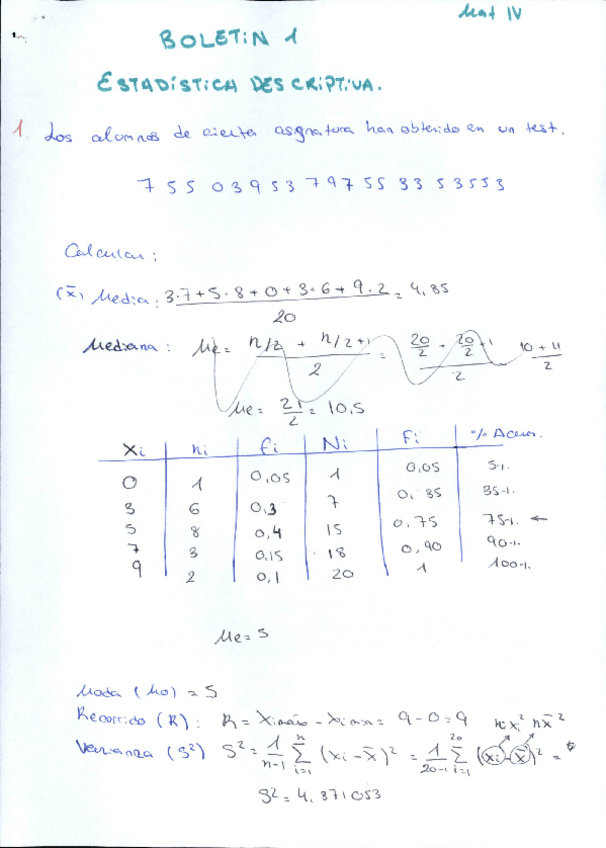 Mat IV
BOLETIN 1
ESTADÍSTICA DESCRIPTIVA.
1. Los alumnos de cierta asignatura han obtenido en un test.
7 5 5 0 3 9 5 3 7 9 7 5 5 3 3 5 3 5 5 3
Calcular:
(x̄) Media: 3·7+5·8+0+3·6+9·2 / 20 = 4,85
Mediana: Me = n/2 + n/2+1 / 2 = 20/2 + 20/2+1 / 2 10+11 / 2
Me = 21/2 = 10,5
Xi ni fi Ni Fi % Acum.
0 1 0,05 1 0,05 5%
3 6 0,3 7 0,35 35%
5 8 0,4 15 0,75 75% ←
7 3 0,15 18 0,90 90%
9 2 0,1 20 1 100%
Me = 5
Moda (Mo) = 5
Recorrido (R): R = Ximáx - Ximin = 9-0 = 9 nx² nx̄²
Varianza (S²) S² = 1/n-1 Σ i=1 n (xi - x̄)² = 1/20-1 Σ i=1 20 (xi - x̄)² =
S² = 4,871053